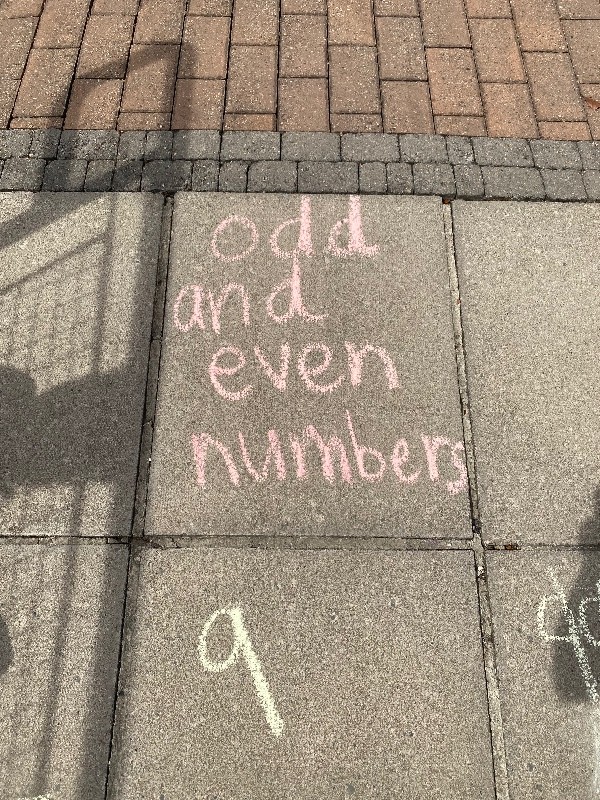 odd
and
even
numbers
9